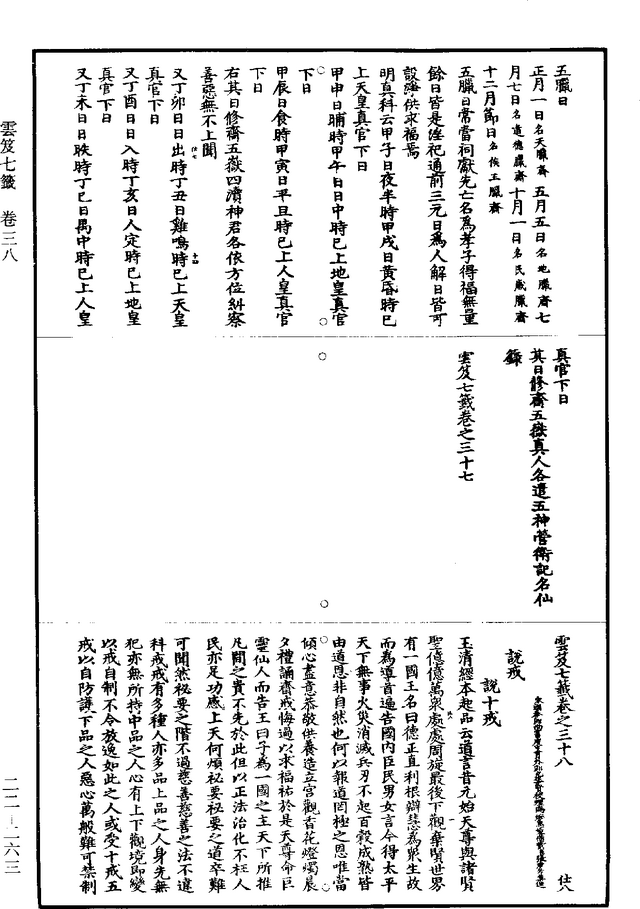 五臘日
正月一日名天臘齋 五月五日名地臘齋 七
月七日名道德臘齋 十月一日名民歲臘齋
十二月節日名侯王臘齋
五臘日常當祠獻先亡名為孝子得福無量
餘日皆是淫祀通前三元日為人解日皆可
設淨供求福焉
明真科云甲子日夜半時甲戌日黃昏時已
上天皇真官下日
甲申日晡時甲午日日中時已上地皇真官
下日
甲辰日食時甲寅日平旦時已上人皇真官
下日
右其日修齋五嶽四瀆神君各依方位糾察
善惡無不上聞
又丁卯日日出時丁丑日雞鳴時已上天皇
真官下日
又丁酉日日入時丁亥日人定時已上地皇
真官下日
又丁未日日昳時丁巳日禺中時已上人皇
真官下日
其日修齋五嶽真人各遣五神營衛記名仙
籙
雲笈七籤卷之三十七
雲笈七籤卷之三十八
仕八
說戒
說十戒
玉清經本起品云道言昔元始天尊與諸賢
聖億億萬眾處處周旋最後下觀棄賢世界
有一國王名曰德正直利根辯慧為眾生故
而為導首遍告國內臣民男女言今得太平
天下無事火災消滅兵刃不起百穀成熟皆
由道恩非自然也何以報道罔極之恩唯當
傾心盡意恭敬供養造立宮觀香花燈燭晨
夕禮誦齋戒悔過以求福祐於是天尊命巨
靈仙人而告王曰子為一國之主天下所推
凡間之貴不先於此但以正法治化不枉人
民亦足功感上天何煩祕要祕要之道卒難
可聞然祕要之階不過慈善慈善之法不違
科戒戒有多種人亦多品上品之人身先無
犯亦無所持中品之人心有上下觀境即變
以戒自制不令放逸如此之人或受十戒五
戒以自防護下品之人惡心萬般難可禁制
雲笈七籤 卷三八
二二—二六三